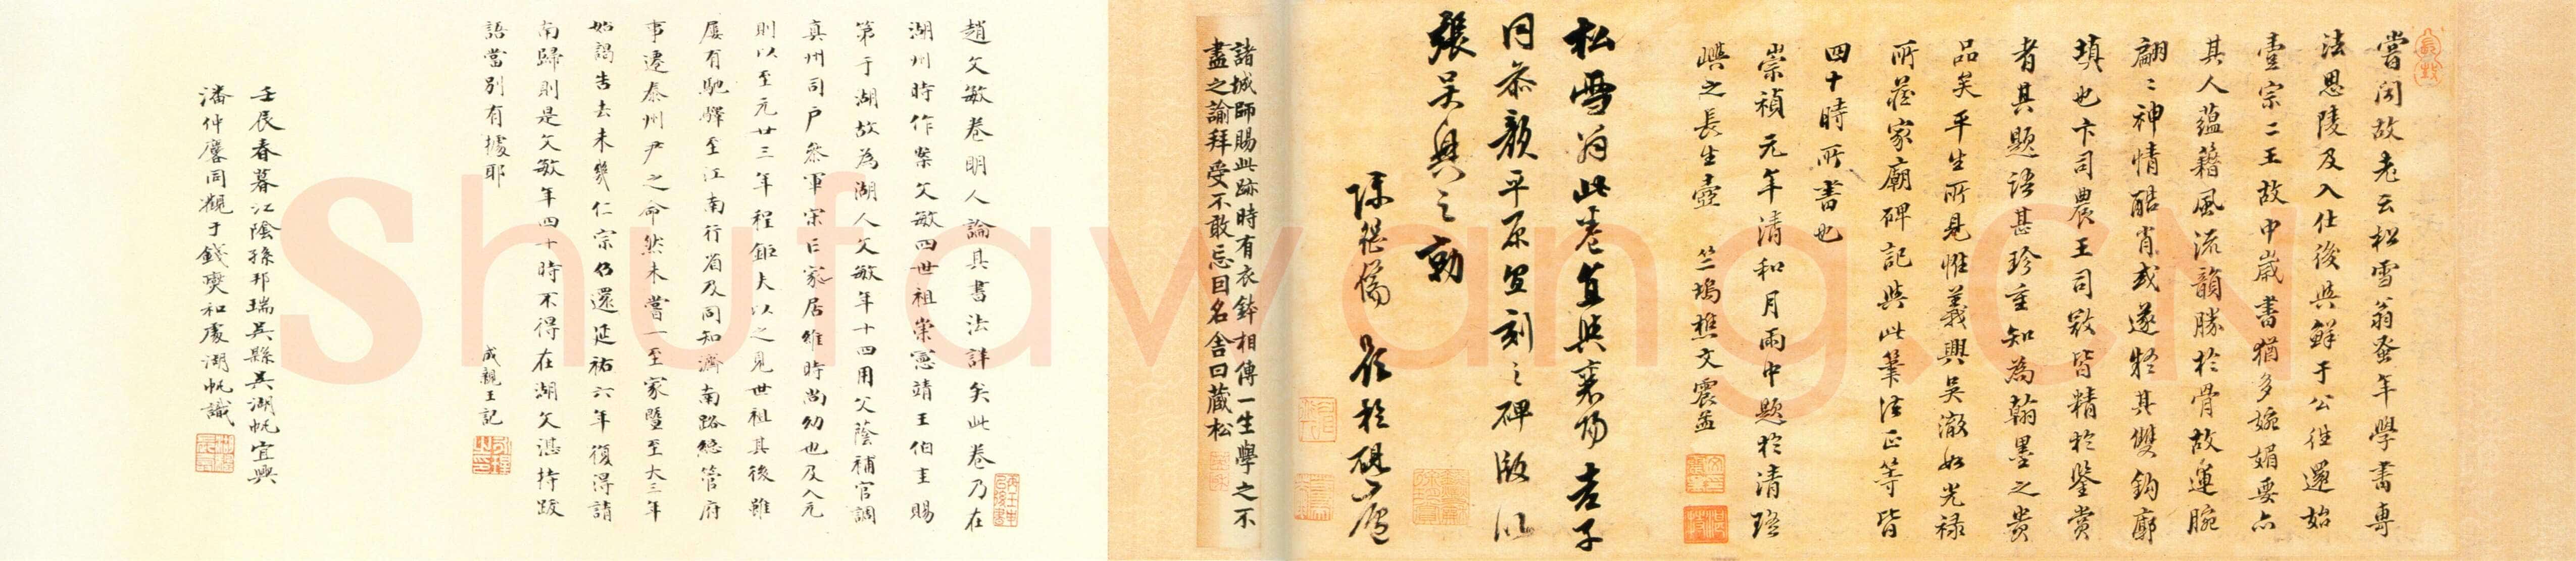 嘗閱故老云松雪翁蚤年學書專
法思陵及入仕後與鮮于公往還始
壹宗二王故中歲書猶多婉媚要亦
其人蘊藉風流韻勝於骨故運腕
翩〻神情酷肖或遂疑其雙鉤廓
填也卞司農王司寇皆精於鑒賞
者其題語甚珍重知為翰墨之貴
品矣平生所見惟義興吳澈如光祿
所藏家廟碑記與此筆法正等皆
四十時所書也
崇禎元年清和月雨中題於清瑤
嶼之長生壺 竺塢樵文震孟
松雪翁此卷直與襄陽方子
同參顏平原宜刻之碑版以
張吳興之勳
陳繼儒 題於硯廬
諸城師賜此跡時有衣鉢相傳一生學之不
盡之諭拜受不敢忘因名舍曰藏松
趙文敏卷明人論其書法詳矣此卷乃在
湖州時作案文敏四世祖崇憲靖王伯圭賜
第于湖故為湖人文敏年十四用父蔭補官調
真州司戶參軍宋亡家居維時尚幼也及入元
則以至元廿三年程鉅夫以之見世祖其後雖
屢有馳驛至江南行省及同知濟南路總管府
事遷泰州尹之命然未嘗一至家暨至大三年
如謁告去未幾仁宗仍還延祐六年復得請
南歸則是文敏年四十時不得在湖文湛持跋
語當別有據耶
成親王記
壬辰春暮江陰孫邦瑞吳縣吳湖帆宜興
潘仲麐同觀于錢奐和處湖帆識
Shufawang.CN